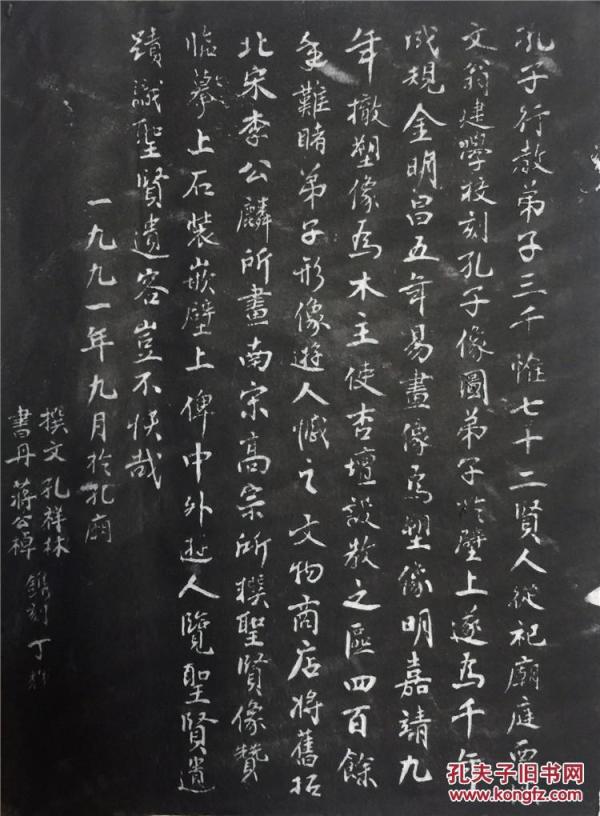 孔子行教弟子三千惟七十二賢人從祀廟庭西漢
文翁建學校刻孔子像圖弟子於壁上遂為千年
成規金明昌五年易畫像為塑像明嘉靖九
年撤塑像為木主使杏壇設教之區四百餘
年難睹弟子形像遊人憾之文物商店將舊拓
北宋李公麟所畫南宋高宗所撰聖賢像贊
臨摹上石裝嵌壁上俾中外遊人覽聖賢遺
蹟識聖賢遺容豈不快哉
一九九一年九月於孔廟
撰文孔祥林
書丹蔣公棹 鐫刻 丁
孔夫子旧书网
www.kongfz.com